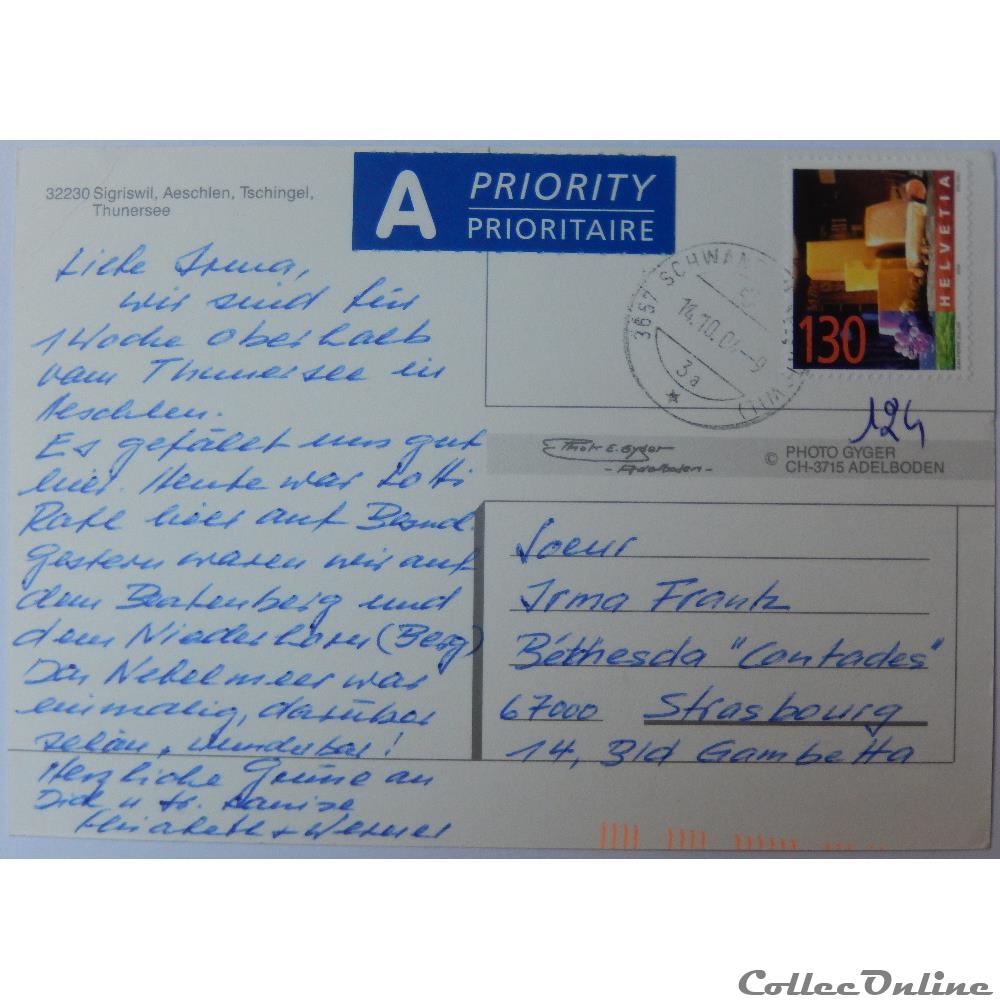 32230 Sigriswil, Aeschlen, Tschingel,
Thunersee
A PRIORITY
PRIORITAIRE
HELVETIA
130
3657 SCHWAN
14.10.04-9
3a
124
Liebe Irma,
wir sind für
1 Woche oberhalb
vom Thunersee in
Aeschlen.
Es gefällt uns gut
hier. Heute war Lotti
hier auf Besuch.
Gestern waren wir auf
dem Beatenberg und
dem Niederhorn (Berg)
Das Nebelmeer war
einmalig, darüber
schön, wunderbar!
Herzliche Grüsse an
Dich u Sr. Louise
Elisabeth + Werner
Photo E. Gyger
- Adelboden -
© PHOTO GYGER
CH-3715 ADELBODEN
Soeur
Irma Frantz
Béthesda "Contades"
67000 Strasbourg
14, Bld Gambetta
CollecOnline